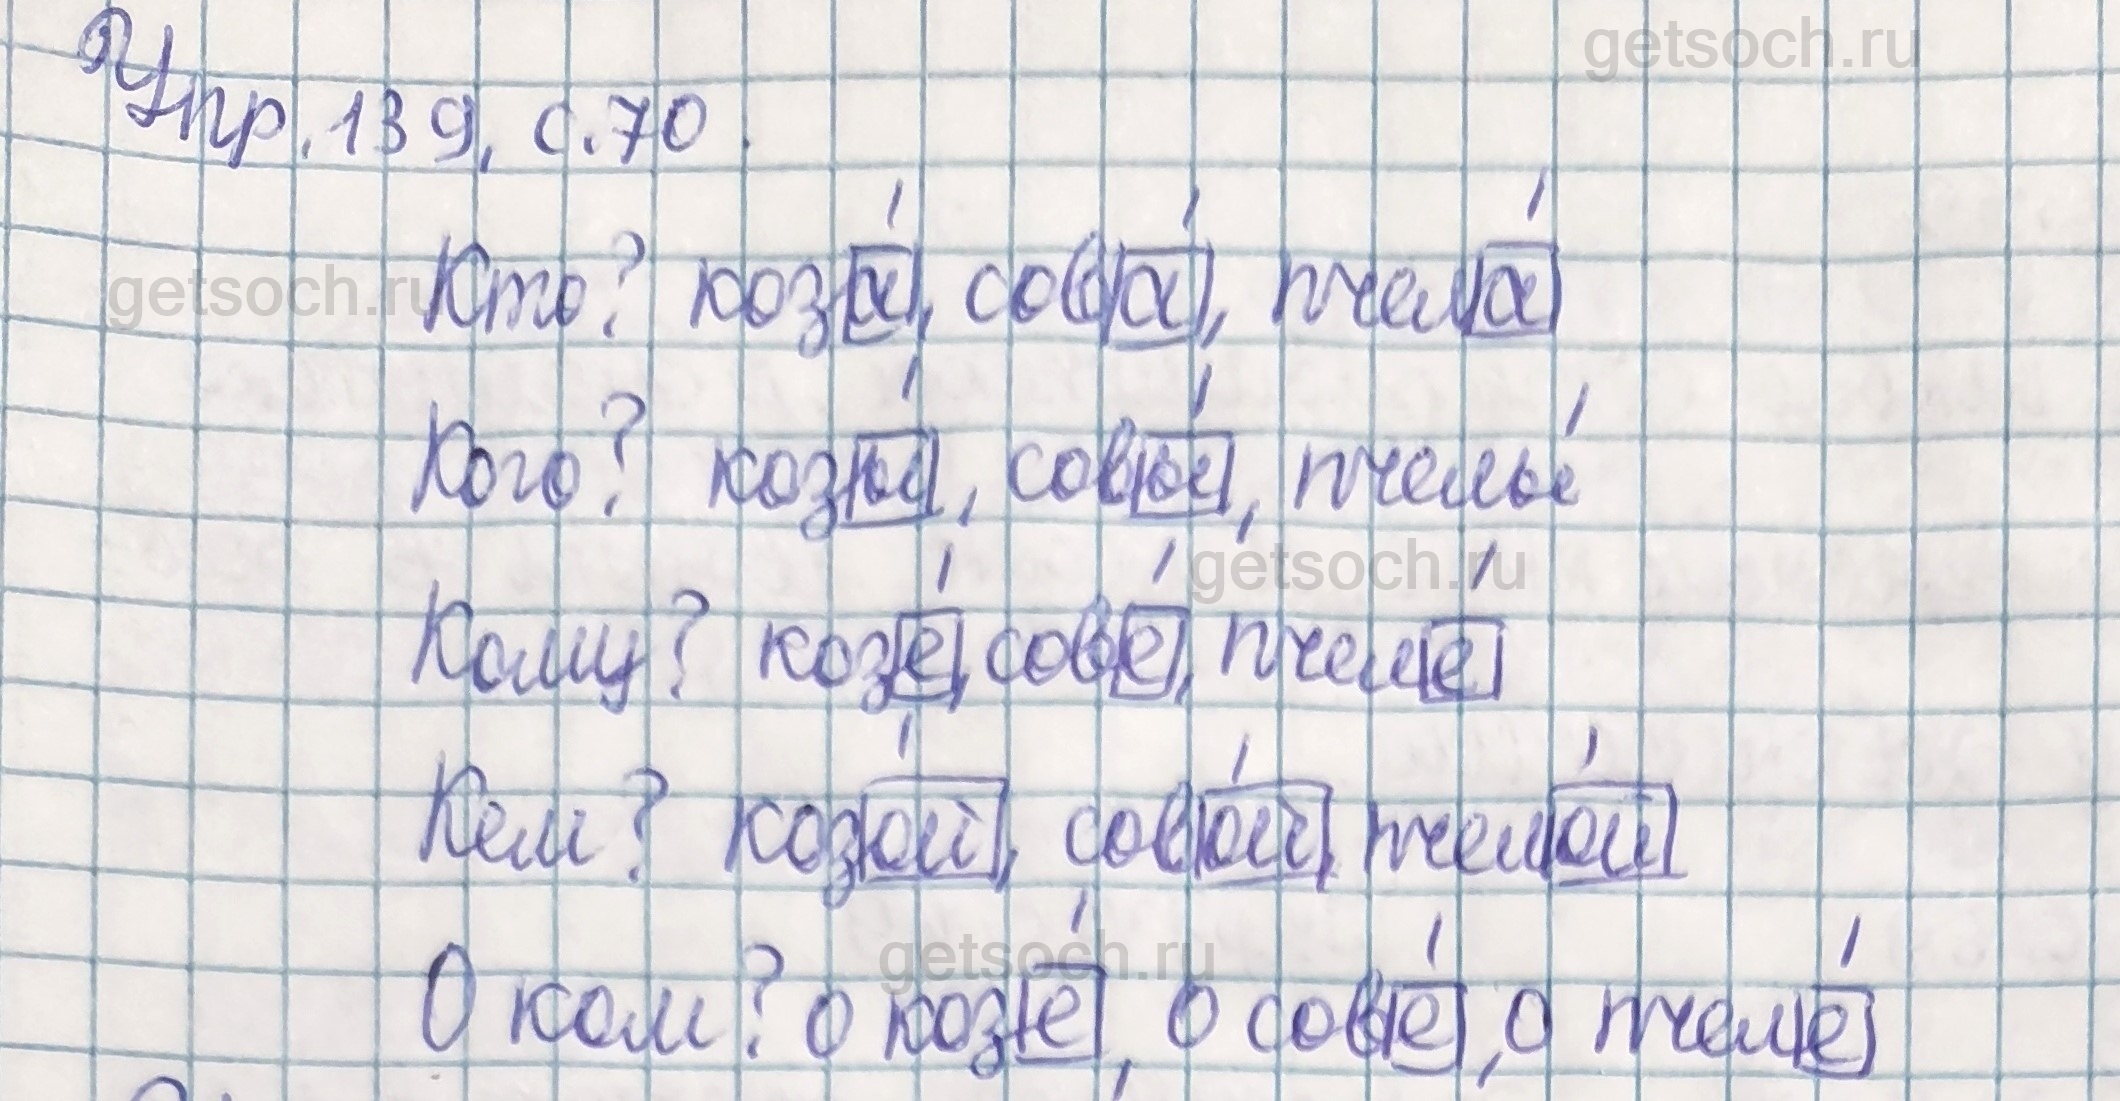 getsoch.ru
Упр. 139, с. 70.
Кто? коза́, сова́, пчела́
getsoch.ru
Кого? козы́, совы́, пчелы́
getsoch.ru
Кому? козе́, сове́, пчеле́
Кем? козо́й, сово́й, пчело́й
getsoch.ru
О ком? о козе́, о сове́, о пчеле́